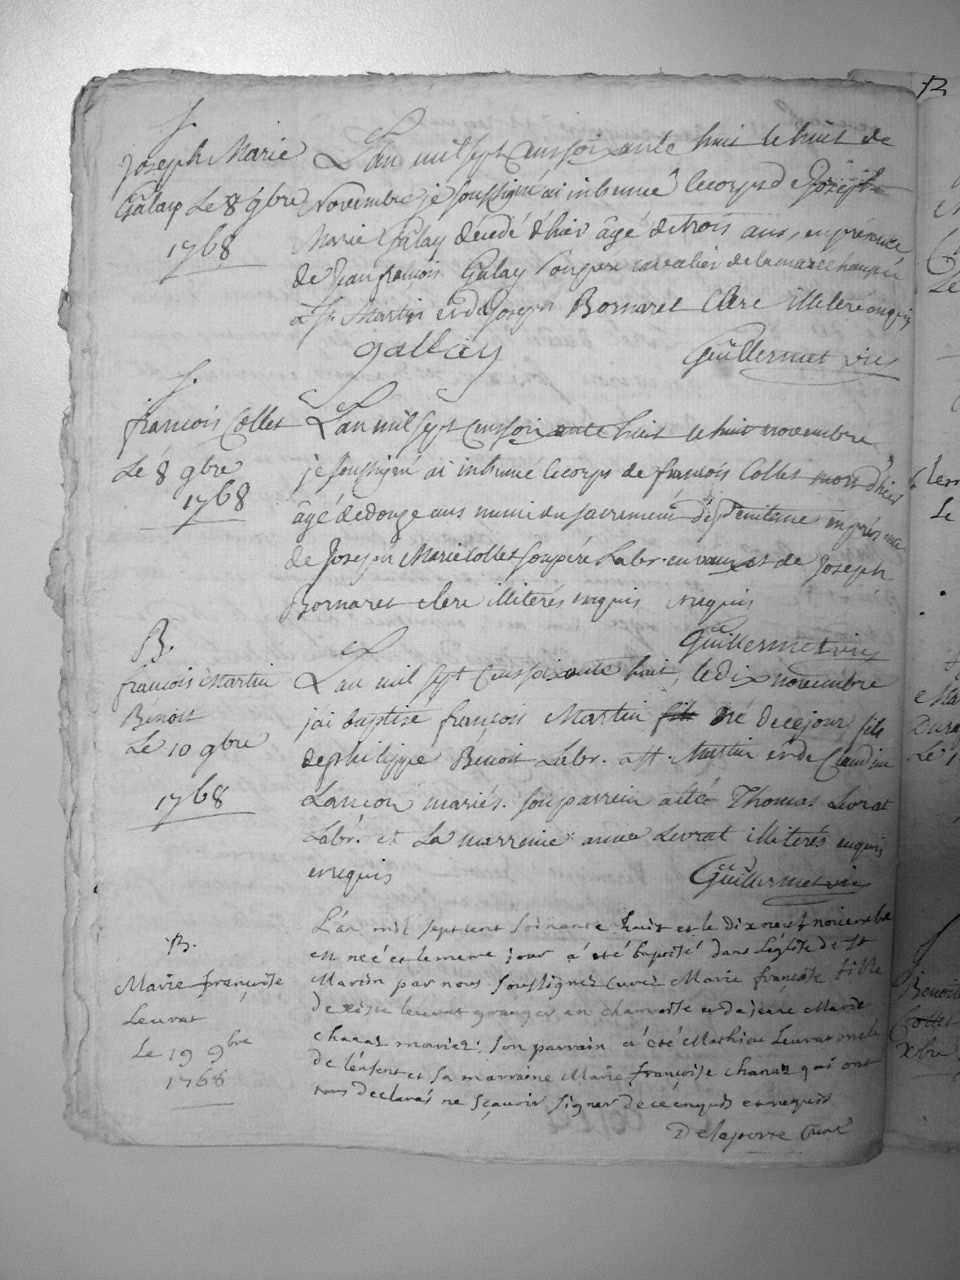 S.
Joseph Marie
Galay Le 8 9bre
1768
L'an mil sept cens soixante huit le huit de
Novembre je soussigné ai inhumé le corps de Joseph
Marie Galay décédé d'hier âgé de trois ans, en présence
de Jean françois Galay son pere cavalier de la marechaussée
a St. Martin et de Joseph Bornaret Clerc illiteré enquis
gallay
Guillermet vic
S.
françois Collet
Le 8 9bre
1768
L'an mil sept cens soixante huit le huit novembre
je soussigné ai inhumé le corps de françois Collet mort d'hier
âgé de douze ans muni du sacrement de Penitence en présence
de Joseph Marie Collet son pére Labr. en vaux et de Joseph
Bornaret clerc illiterés enquis requis
Guillermet vic
B.
françois Martin
Benoit
Le 10 9bre
1768
L'an mil sept cens soixante huit, le dix novembre
j'ai baptisé françois Martin fils né de ce jour fils
de philippe Benoit Labr. a St. Martin et de Claudine
Lancon mariés. son parrein a été Thomas Livrat
Labr. et La marreine anne Levrat illiterés enquis
et requis
Guillermet vic
B.
Marie françoise
Leuvrat
Le 19 9bre
1768
L'an mil sept cent soixante huit et le dix neuf novembre
est née et le meme jour a été baptisé dans l'église de St
Martin par nous soussigné Curé Marie françoise fille
de leuvrat granger en chamoise et de jeane Marie
chanaz mariez; son parrain a été Mathieu Leuvrat oncle
de l'enfent et sa marraine Marie françoise chanaz qui ont
tous declarés ne sçavoir signer de ce enquis et requis
Delaporte Curé